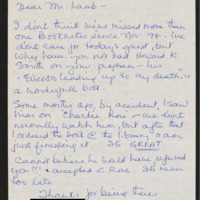 Dear Mr. Lamb—
I don't think I've missed more than
one Booknotes since Nov. '94. We
don't care for today's guest, but
Why have you not had Howard K
Smith on your program — his
"Events leading up to my death" is
a wonderful book.
Some months ago, by accident, I saw
him on Charlie Rose — we don't
normally watch him, but after that
I ordered the book @ the library & am
just finishing it. It's GREAT
Cannot believe he would have refused
you!!! & accepted C. Rose. It's never
too late
Thanks for being there